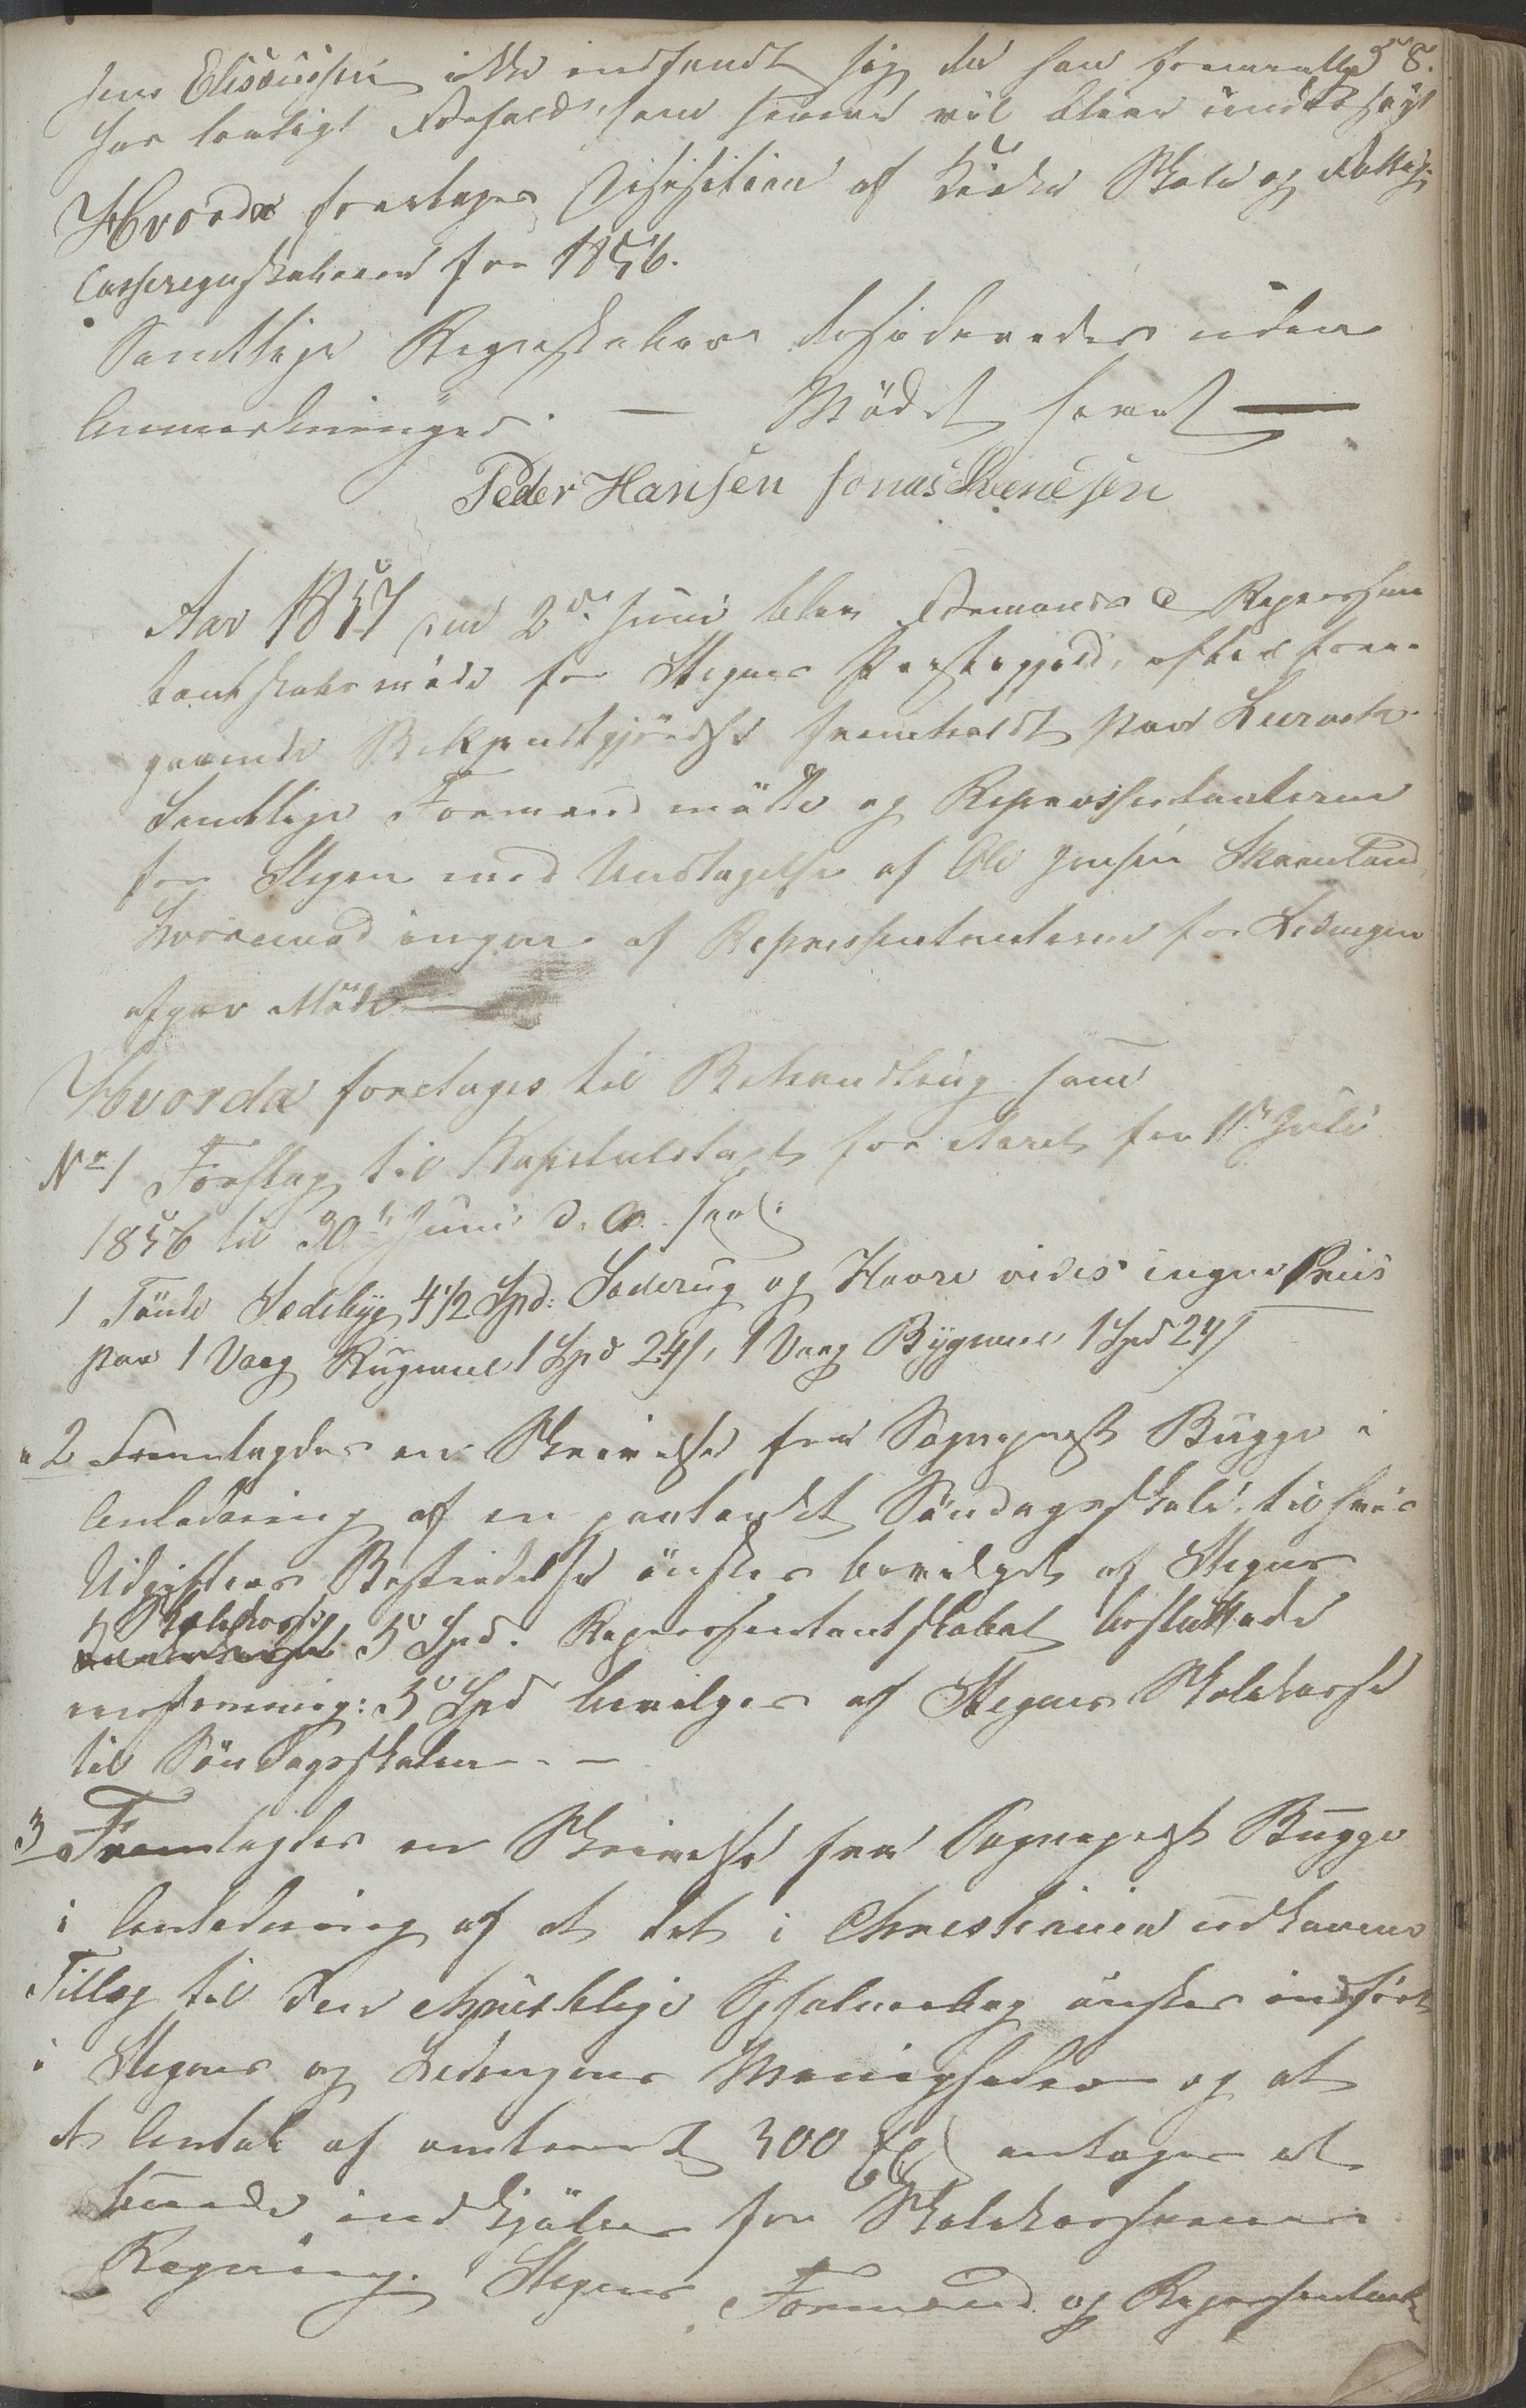 58.
Jens Elisæusen ikke indfandt sig da han formentlig
har lovligt Forfald som senere vil blive undersøgt
Hvorda foretages Desisition af Kirke Skole og Fattig-
Casseregnskaberne for 1856.
Samtlige Regnskaber desideredes uden
Anmærkninger. — Mødet hævet —
Peder Hansen Jonas Svendsen
Aar 1857 den 2den Juni blev Formands & Repræsen
tantskabsmøde for Stegens Præstegjæld, efter fore-
gaaende Bekjendtgjørelse fremholdt paa Leirvaag.
Samtlige Formænd mødte og Repræsentanterne
for Stegen med Undtagelse af Ole Jensen Skaanland
hvorimod ingen af Repræsentanterne for Ledingen
afgav Møde —
Hvorda foretages til Behandling som
No 1 Forslag til Kapitulstagt for Aaret fra 1ste Juli
1856 til 30te Juni d. A. saal:
1 Tønde Sædebyg 4 1/2 Spd: Sæderug og Havre vides ingen Priis
paa 1 Vaag Rugmeel 1 Spd 24 s, 1 Vaag Bygmeel 1 Spd 24 s
" 2 Fremlagdes en Skrivelse fra Sogneprest Bugge i
Anledning af en paatænkt Søndagsskole, til hvis
Udgifters Bestridelse ønskes bevilget af Stegens
Skolekasse
5 Spd. Repræsentantskabet besluttede
eenstemmig: 5 Spd bevilges af Stegens Skolekasse
til Søndagsskolen. —
3 Fremlagdes en Skrivelse fra Sogneprest Bugge
i Anledning af at det i Christiania udkomne
Tillæg til den evangeliske Psalmebog ønskes indført
i Stegens og Ledingens Menigheder og at
et Antal af omtrent 300 Expl antages at
burde indkjøbes for Skolekassernes
Regning. Stegens Formænd og Repræsentant